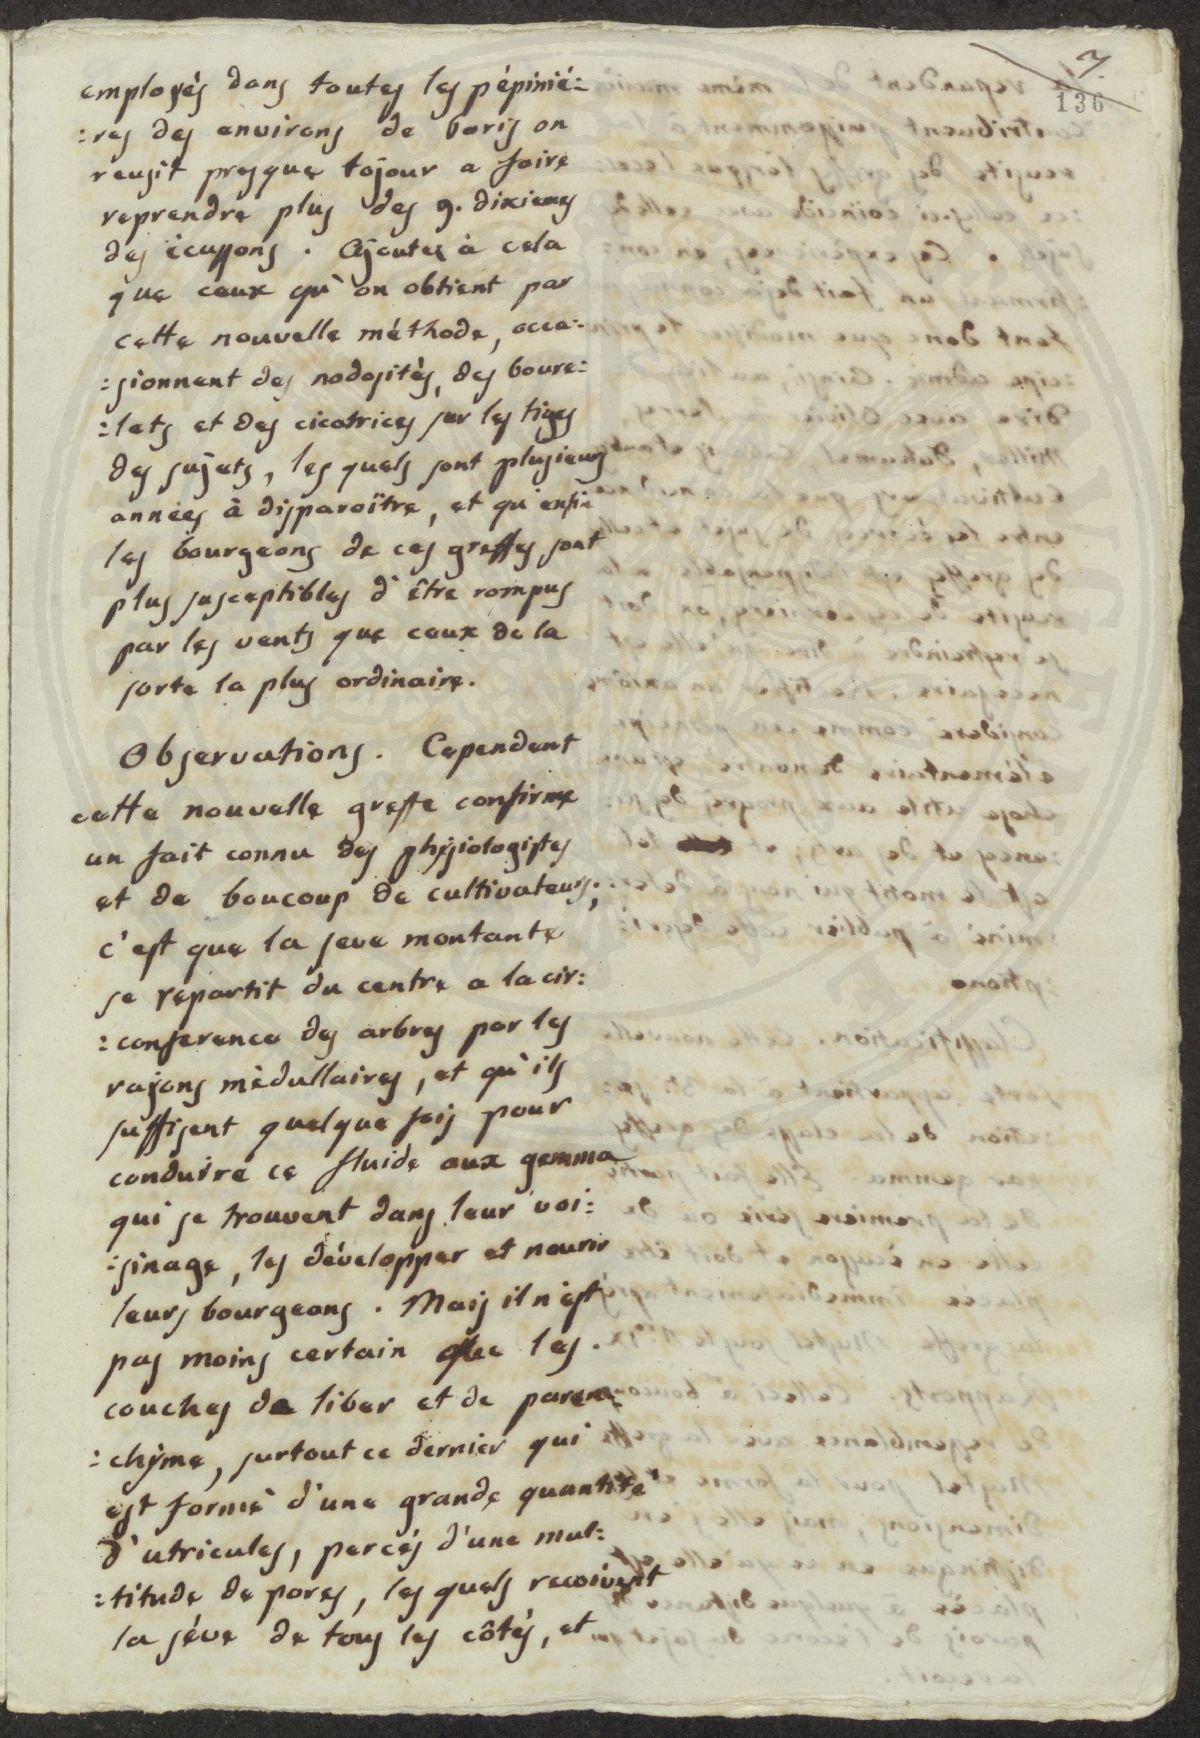 7.
136
employés dans toutes les pépinié:
:res des environs de Paris on
reusit presque tojour a faire
reprendre plus des 9. dixiemes
des écussons. Ajoutez à cela
que ceux qu'on obtient par
cette nouvelle méthode, occa:
:sionnent des nodositès, des boure:
:lets et des cicatrices sur les tiges
des sujets, les quels sont plusieurs
années à disparoître, et qu'enfin
les bourgeons de ces greffes sont
plus susceptibles d'être rompus
par les vents que ceux de la
sorte la plus ordinaire.
Observations. Cependent
cette nouvelle greffe confirme
un fait connu des physiologistes
et de boucoup de cultivateurs;
c'est que la seve montante
se repartit du centre a la cir:
:conference des arbres par les
rayons mèdullaires, et qu'ils
suffisent quelque fois pour
conduire ce fluide aux gemma
qui se trouvent dans leur voi:
:sinage, les développer et nourir
leurs bourgeons. Mais il n'est
pas moins certain que les
couches de liber et de paren:
:chyme, surtout ce dernier qui
est formé d'une grande quantité
d'utricules, percés d'une mul:
:titude de pores, les quels recoivent
la séve de tous les côtés, et